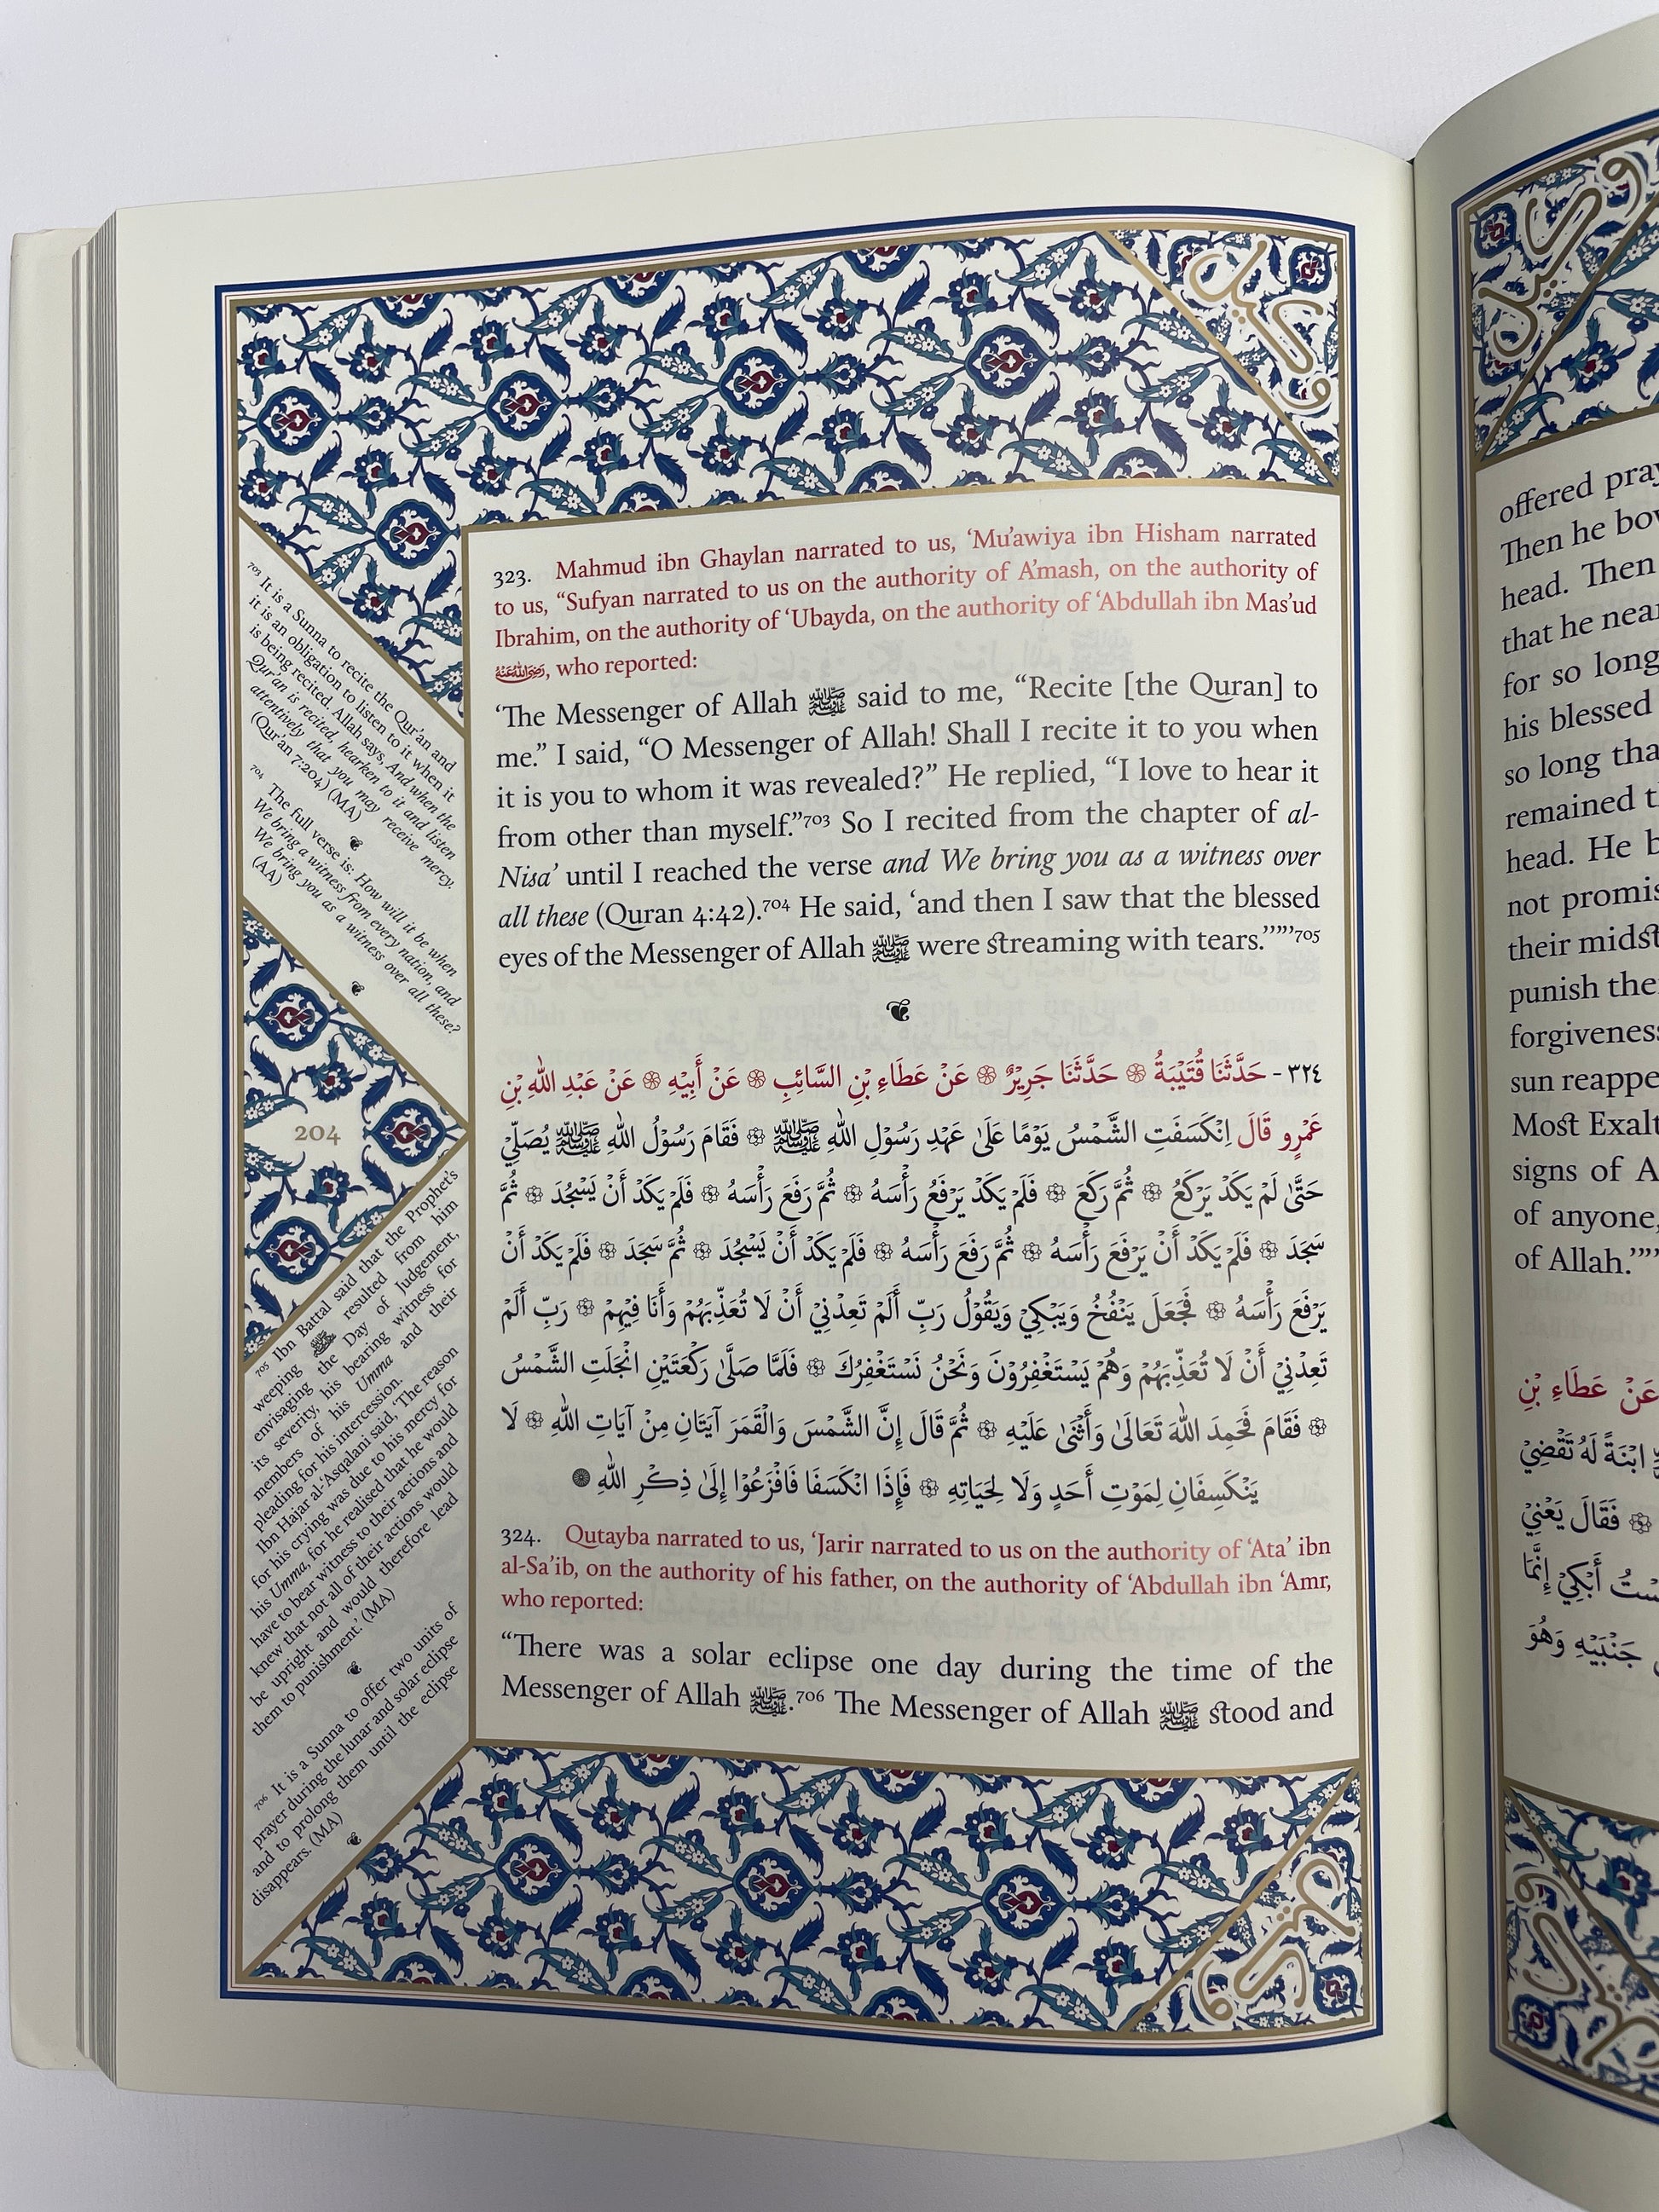 323. Mahmud ibn Ghaylan narrated to us, ‘Mu’awiya ibn Hisham narrated
to us, “Sufyan narrated to us on the authority of A’mash, on the authority of
Ibrahim, on the authority of ‘Ubayda, on the authority of ‘Abdullah ibn Mas’ud
رَضِيَ اللَّهُ عَنْهُ, who reported:
‘The Messenger of Allah ﷺ said to me, “Recite [the Quran] to
me.” I said, “O Messenger of Allah! Shall I recite it to you when
it is you to whom it was revealed?” He replied, “I love to hear it
from other than myself.”⁷⁰³ So I recited from the chapter of al-
Nisa’ until I reached the verse and We bring you as a witness over
all these (Quran 4:42).⁷⁰⁴ He said, ‘and then I saw that the blessed
eyes of the Messenger of Allah ﷺ were streaming with tears.’”’”⁷⁰⁵
٣٢٤ - حَدَّثَنَا قُتَيْبَةُ ۞ حَدَّثَنَا جَرِيْرٌ ۞ عَنْ عَطَاءِ بْنِ السَّائِبِ ۞ عَنْ أَبِيْهِ ۞ عَنْ عَبْدِ اللهِ بْنِ
عَمْرٍو قَالَ اِنْكَسَفَتِ الشَّمْسُ يَوْمًا عَلَىٰ عَهْدِ رَسُوْلِ اللهِ ﷺ ۞ فَقَامَ رَسُوْلُ اللهِ ﷺ يُصَلِّيْ
حَتَّىٰ لَمْ يَكَدْ يَرْكَعُ ۞ ثُمَّ رَكَعَ ۞ فَلَمْ يَكَدْ يَرْفَعُ رَأْسَهُ ۞ ثُمَّ رَفَعَ رَأْسَهُ ۞ فَلَمْ يَكَدْ أَنْ يَسْجُدَ ۞ ثُمَّ
سَجَدَ ۞ فَلَمْ يَكَدْ أَنْ يَرْفَعَ رَأْسَهُ ۞ ثُمَّ رَفَعَ رَأْسَهُ ۞ فَلَمْ يَكَدْ أَنْ يَسْجُدَ ۞ ثُمَّ سَجَدَ ۞ فَلَمْ يَكَدْ أَنْ
يَرْفَعَ رَأْسَهُ ۞ فَجَعَلَ يَنْفُخُ وَيَبْكِيْ وَيَقُوْلُ رَبِّ أَلَمْ تَعِدْنِيْ أَنْ لَا تُعَذِّبَهُمْ وَأَنَا فِيْهِمْ ۞ رَبِّ أَلَمْ
تَعِدْنِيْ أَنْ لَا تُعَذِّبَهُمْ وَهُمْ يَسْتَغْفِرُوْنَ وَنَحْنُ نَسْتَغْفِرُكَ ۞ فَلَمَّا صَلَّىٰ رَكْعَتَيْنِ انْجَلَتِ الشَّمْسُ
۞ فَقَامَ فَحَمِدَ اللهَ تَعَالَىٰ وَأَثْنَىٰ عَلَيْهِ ۞ ثُمَّ قَالَ إِنَّ الشَّمْسَ وَالْقَمَرَ آيَتَانِ مِنْ آيَاتِ اللهِ ۞ لَا
يَنْكَسِفَانِ لِمَوْتِ أَحَدٍ وَلَا لِحَيَاتِهِ ۞ فَإِذَا انْكَسَفَا فَافْزَعُوْا إِلَىٰ ذِكْرِ اللهِ
324. Qutayba narrated to us, ‘Jarir narrated to us on the authority of ‘Ata’ ibn
al-Sa’ib, on the authority of his father, on the authority of ‘Abdullah ibn ‘Amr,
who reported:
“There was a solar eclipse one day during the time of the
Messenger of Allah ﷺ.⁷⁰⁶ The Messenger of Allah ﷺ stood and
⁷⁰³ It is a Sunna to recite the Qur’an and
it is an obligation to listen to it when it
is being recited. Allah says, And when the
Qur’an is recited, hearken to it and listen
attentively that you may receive mercy.
(Qur’an 7:204) (MA)
⁷⁰⁴ The full verse is: How will it be when
We bring a witness from every nation, and
We bring you as a witness over all these?
(AA)
204
⁷⁰⁵ Ibn Battal said that the Prophet’s
weeping ﷺ resulted from him
envisaging the Day of Judgement,
its severity, his bearing witness for
members of his Umma and their
pleading for his intercession.
Ibn Hajar al-‘Asqalani said, ‘The reason
for his crying was due to his mercy for
his Umma, for he realised that he would
have to bear witness to their actions and
knew that not all of their actions would
be upright and would therefore lead
them to punishment.’ (MA)
⁷⁰⁶ It is a Sunna to offer two units of
prayer during the lunar and solar eclipse
and to prolong them until the eclipse
disappears. (MA)
offered
Then he
head. Then
that he
for so long
his blessed
so long
remained
head. He
not
their midst
punish
forgiveness
sun
Most
signs of
of anyone,
of Allah.’”’”
عَنْ عَطَاءِ بْنِ
ابْنَةً لَهُ تَقْضِيْ
۞ فَقَالَ يَعْنِيْ
أَبْكِيْ إِنَّمَا
جَنْبَيْهِ وَهُوَ